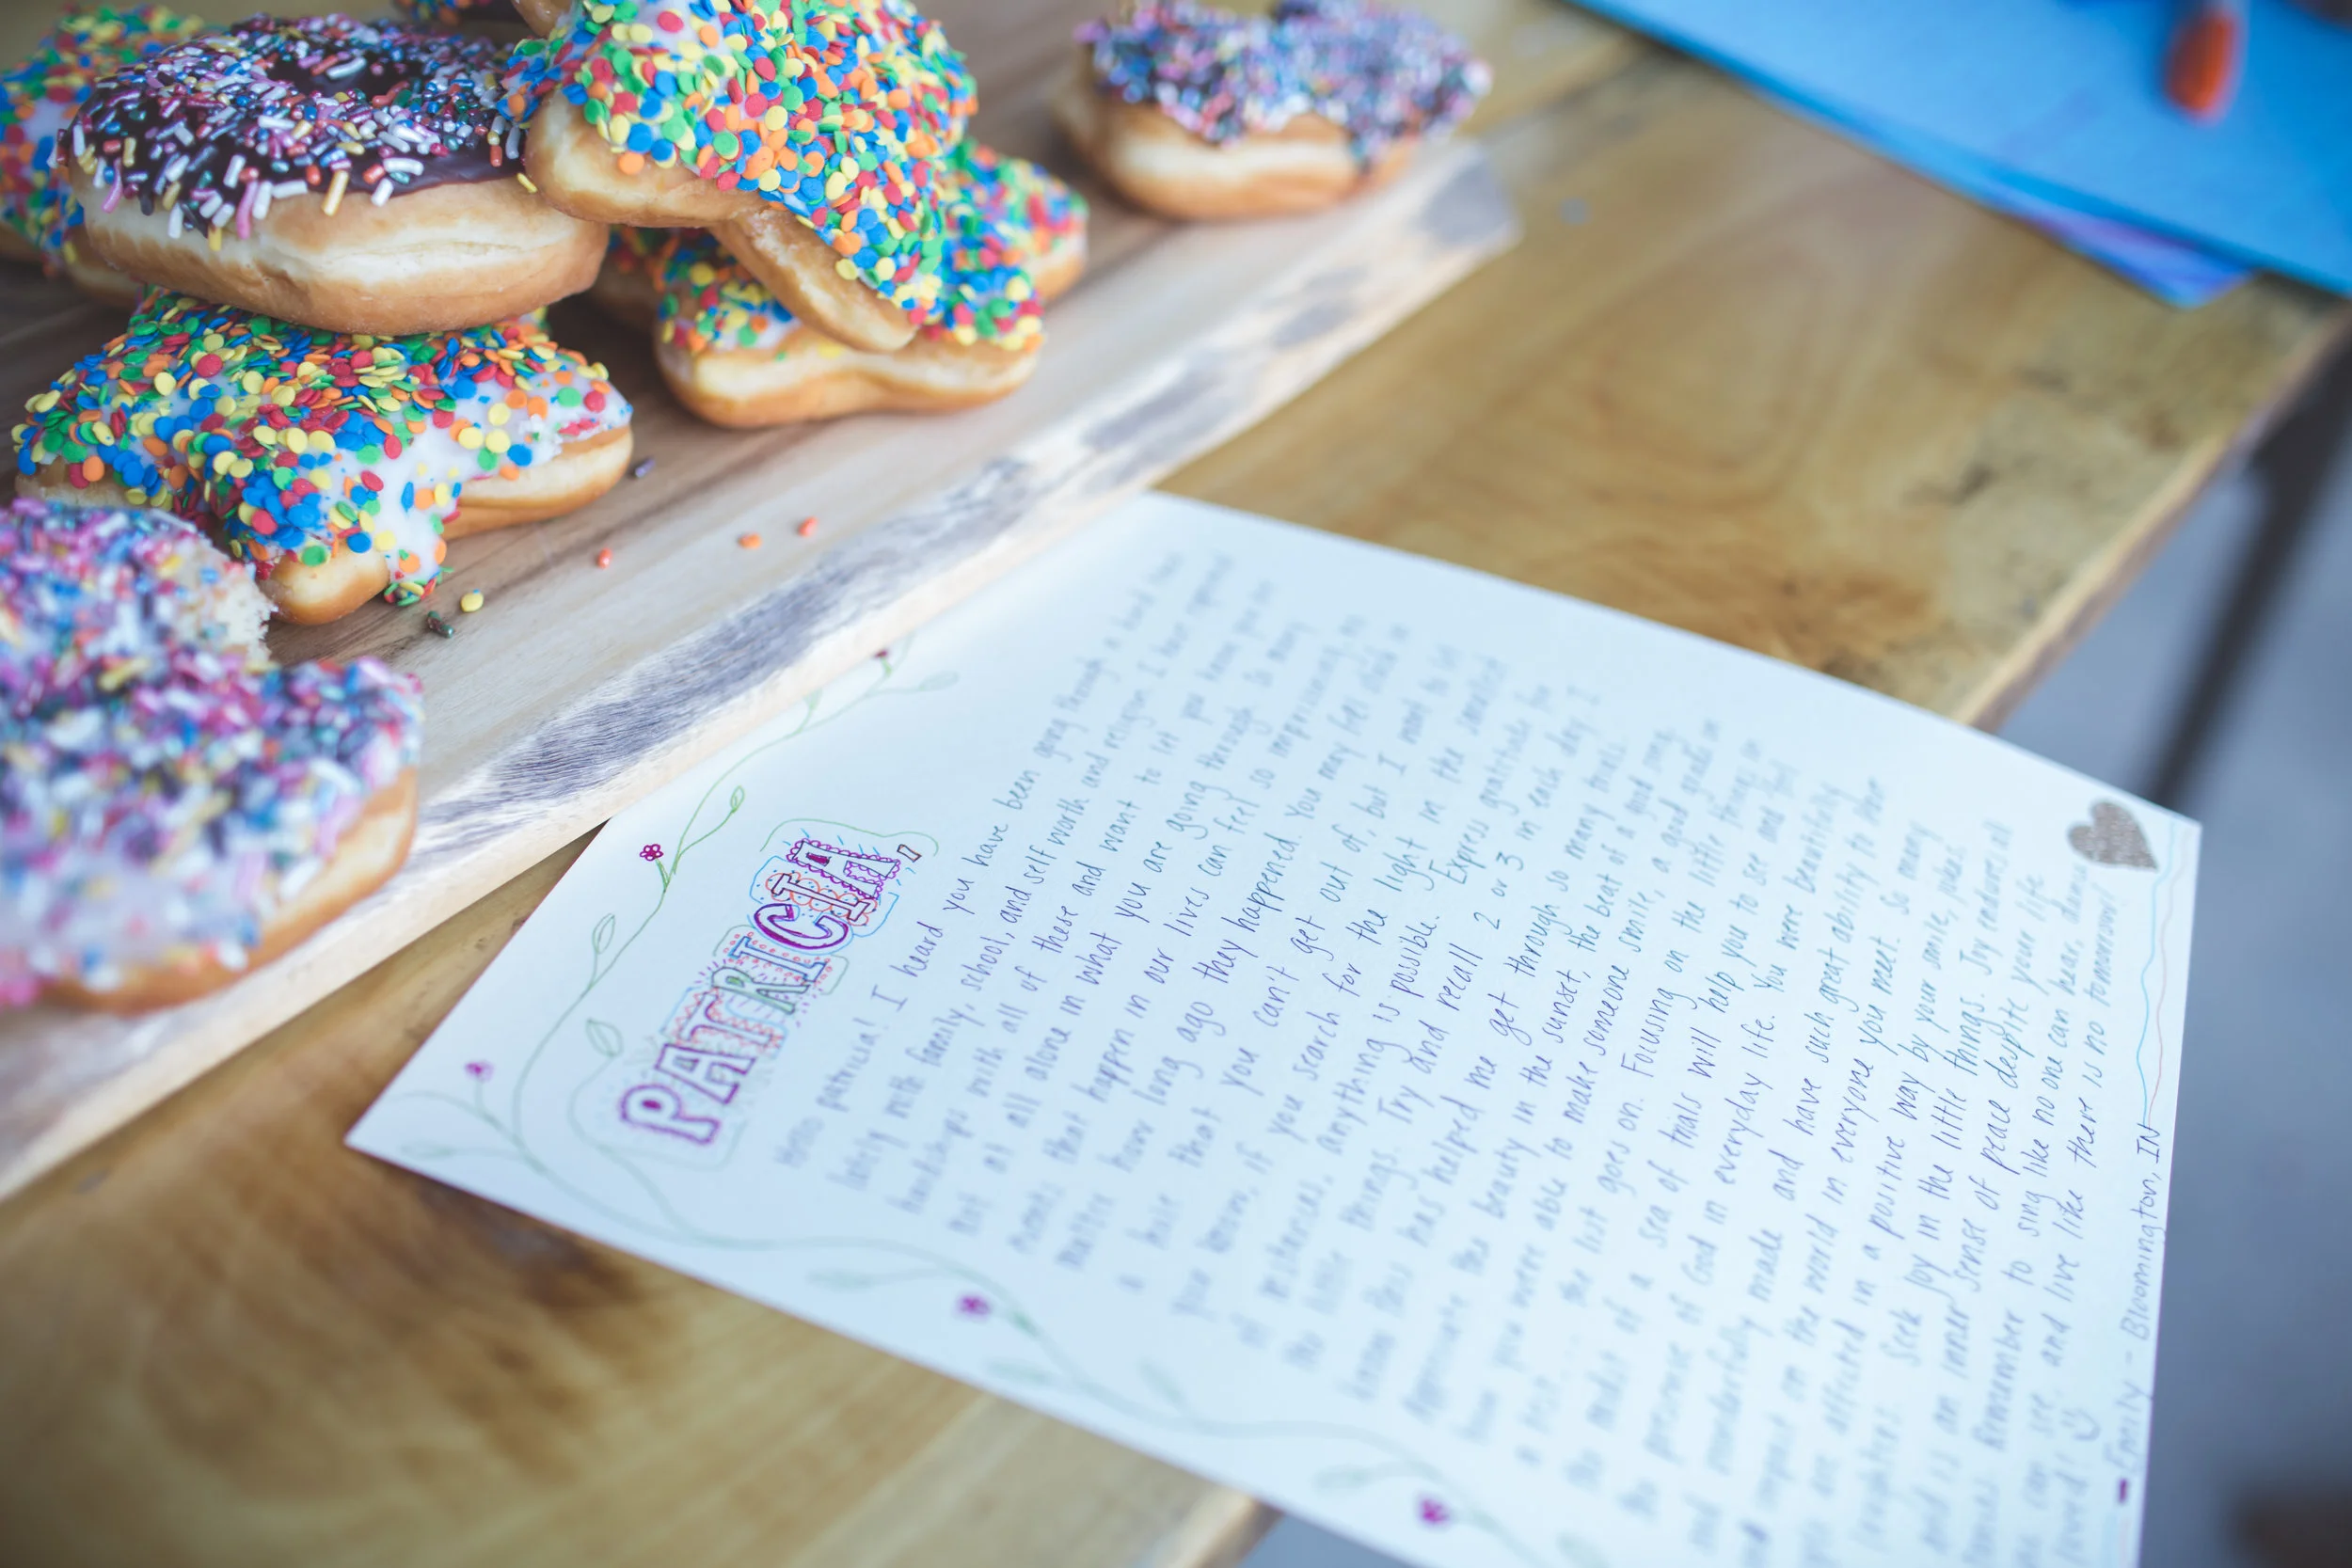 PATRICIA,
Hello patricia! I heard you have been going through a hard time
lately with family, school, and self worth and religion. I have
hardships with all of these and want to let you know you are
not at all alone in what you are going through. So many
events that happen in our lives can feel so imprisoning no
matter how long ago they happened. You may feel stuck in
a hole that you can't get out of, but I want to let
you know, if you search for the light in the smallest
of mysteries, anything is possible. Express gratitude for
the little things. Try and recall 2 or 3 in each day. I
know this has helped me get through so many trials.
Appreciate the beauty in the sunset, the beat of a good song,
how you were able to make someone smile, a good grade on
a test... the list goes on. Focusing on the little things in
the midst of a sea of trials will help you to see and feel
the presence of God in everyday life. You were beautifully
and wonderfully made and have such great ability to
impact on the world in everyone you meet. So many
are affected in a positive way by your smile, jokes,
laughter. Seek joy in the little things. Joy endures all
and is an inner sense of peace despite your life
Remember to sing like no one can hear, dance
can see, and live like there is no tomorrow!
loved!
- Emily - Bloomington, IN